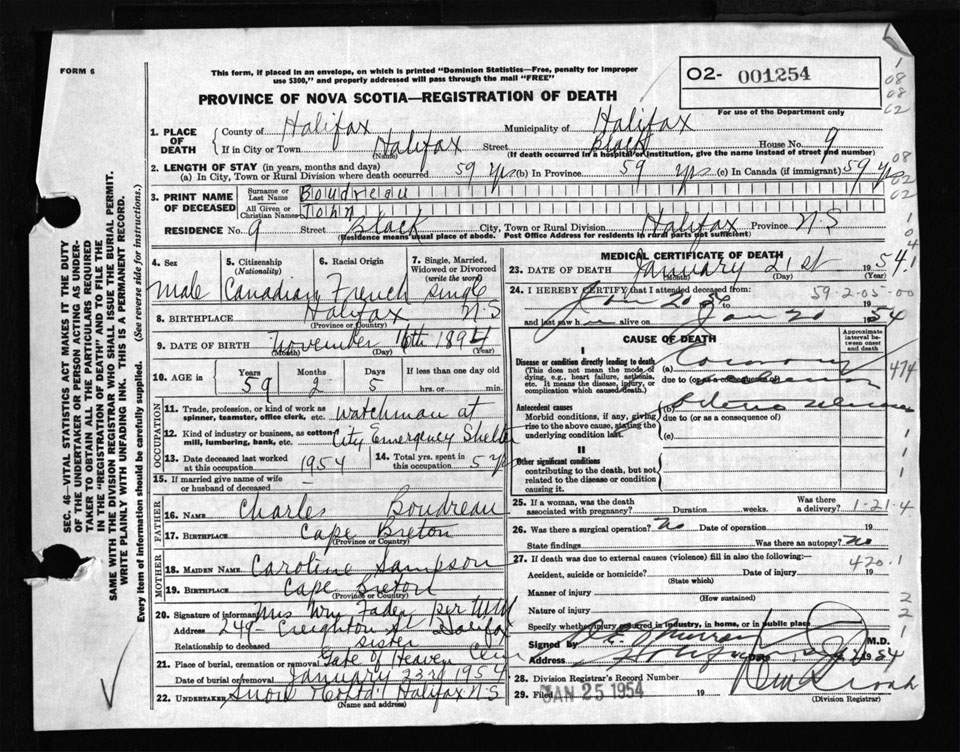 FORM 6
This form, if placed in an envelope, on which is printed "Dominion Statistics—Free, penalty for improper
use $300," and properly addressed will pass through the mail "FREE"
O2- 001254
For use of the Department only
PROVINCE OF NOVA SCOTIA—REGISTRATION OF DEATH
1. PLACE OF DEATH
County of Halifax Municipality of Halifax
If in City or Town Halifax Street Black House No. 9
(Name) (If death occurred in a hospital or institution, give the name instead of street and number)
2. LENGTH OF STAY (in years, months and days)
(a) In City, Town or Rural Division where death occurred 59 yrs (b) In Province 59 yrs (c) In Canada (if immigrant) 59 yrs
3. PRINT NAME OF DECEASED
Surname or Last Name Boudreau
All Given or Christian Names John
RESIDENCE No. 9 Street Black City, Town or Rural Division Halifax Province N.S
(Residence means usual place of abode. Post Office Address for residents in rural parts not sufficient)
4. Sex
Male
5. Citizenship (Nationality)
Canadian
6. Racial Origin
French
7. Single, Married, Widowed or Divorced (write the word)
Single
8. BIRTHPLACE Halifax N.S
(Province or Country)
9. DATE OF BIRTH November 16th 1894
(Month) (Day) (Year)
10. AGE in Years Months Days If less than one day old
59 2 5 hrs. or min.
OCCUPATION
11. Trade, profession, or kind of work as spinner, teamster, office clerk, etc. Watchman at
12. Kind of industry or business, as cotton mill, lumbering, bank, etc. City Emergency Shelter
13. Date deceased last worked at this occupation 1954
14. Total yrs. spent in this occupation 5 yrs
15. If married give name of wife or husband of deceased —
FATHER
16. NAME Charles Boudreau
17. BIRTHPLACE Cape Breton
(Province or Country)
MOTHER
18. MAIDEN NAME Caroline Sampson
19. BIRTHPLACE Cape Breton
(Province or Country)
20. Signature of informant Mrs Wm Faden per
Address 249 Creighton St Halifax
Relationship to deceased Sister
21. Place of burial, cremation or removal Gate of Heaven Cem
Date of burial or removal January 23rd 1954
22. UNDERTAKER Snow Halifax N.S
(Name and address)
MEDICAL CERTIFICATE OF DEATH
23. DATE OF DEATH January 21st 1954
(Month) (Day) (Year)
24. I HEREBY CERTIFY that I attended deceased from
59-2-05-00
Jan 20 54 to 19
and last saw h alive on Jan 20 1954
CAUSE OF DEATH
Approximate interval between onset and death
I
Disease or condition directly leading to death
(This does not mean the mode of dying, e.g., heart failure, asthenia, etc. It means the disease, injury, or complication which caused death.)
(a) Coronary
due to (or as a consequence of)
474
Antecedent causes
Morbid conditions, if any, giving rise to the above cause, stating the underlying condition last.
(b)
due to (or as a consequence of)
(c)
II
Other significant conditions
contributing to the death, but not related to the disease or condition causing it.
25. If a woman, was the death associated with pregnancy? Duration weeks. Was there a delivery? 1-21-4
26. Was there a surgical operation? No Date of operation 19
State findings Was there an autopsy? No
27. If death was due to external causes (violence) fill in also the following:—
420.1
Accident, suicide or homicide? Date of injury 19
(State which)
Manner of injury
(How sustained)
Nature of injury
Specify whether injury occurred in industry, in home, or in public place
Signed by Murray M.D.
Address 1954
28. Division Registrar's Record Number
29. Filed JAN 25 1954 19
(Division Registrar)
SEC. 46—VITAL STATISTICS ACT MAKES IT THE DUTY
OF THE UNDERTAKER OR PERSON ACTING AS UNDERTAKER TO OBTAIN ALL THE PARTICULARS REQUIRED
IN THE "REGISTRATION OF DEATH" AND TO FILE THE
SAME WITH THE DIVISION REGISTRAR WHO SHALL ISSUE THE BURIAL PERMIT.
WRITE PLAINLY WITH UNFADING INK. THIS IS A PERMANENT RECORD.
Every item of information should be carefully supplied. (See reverse side for instructions.)